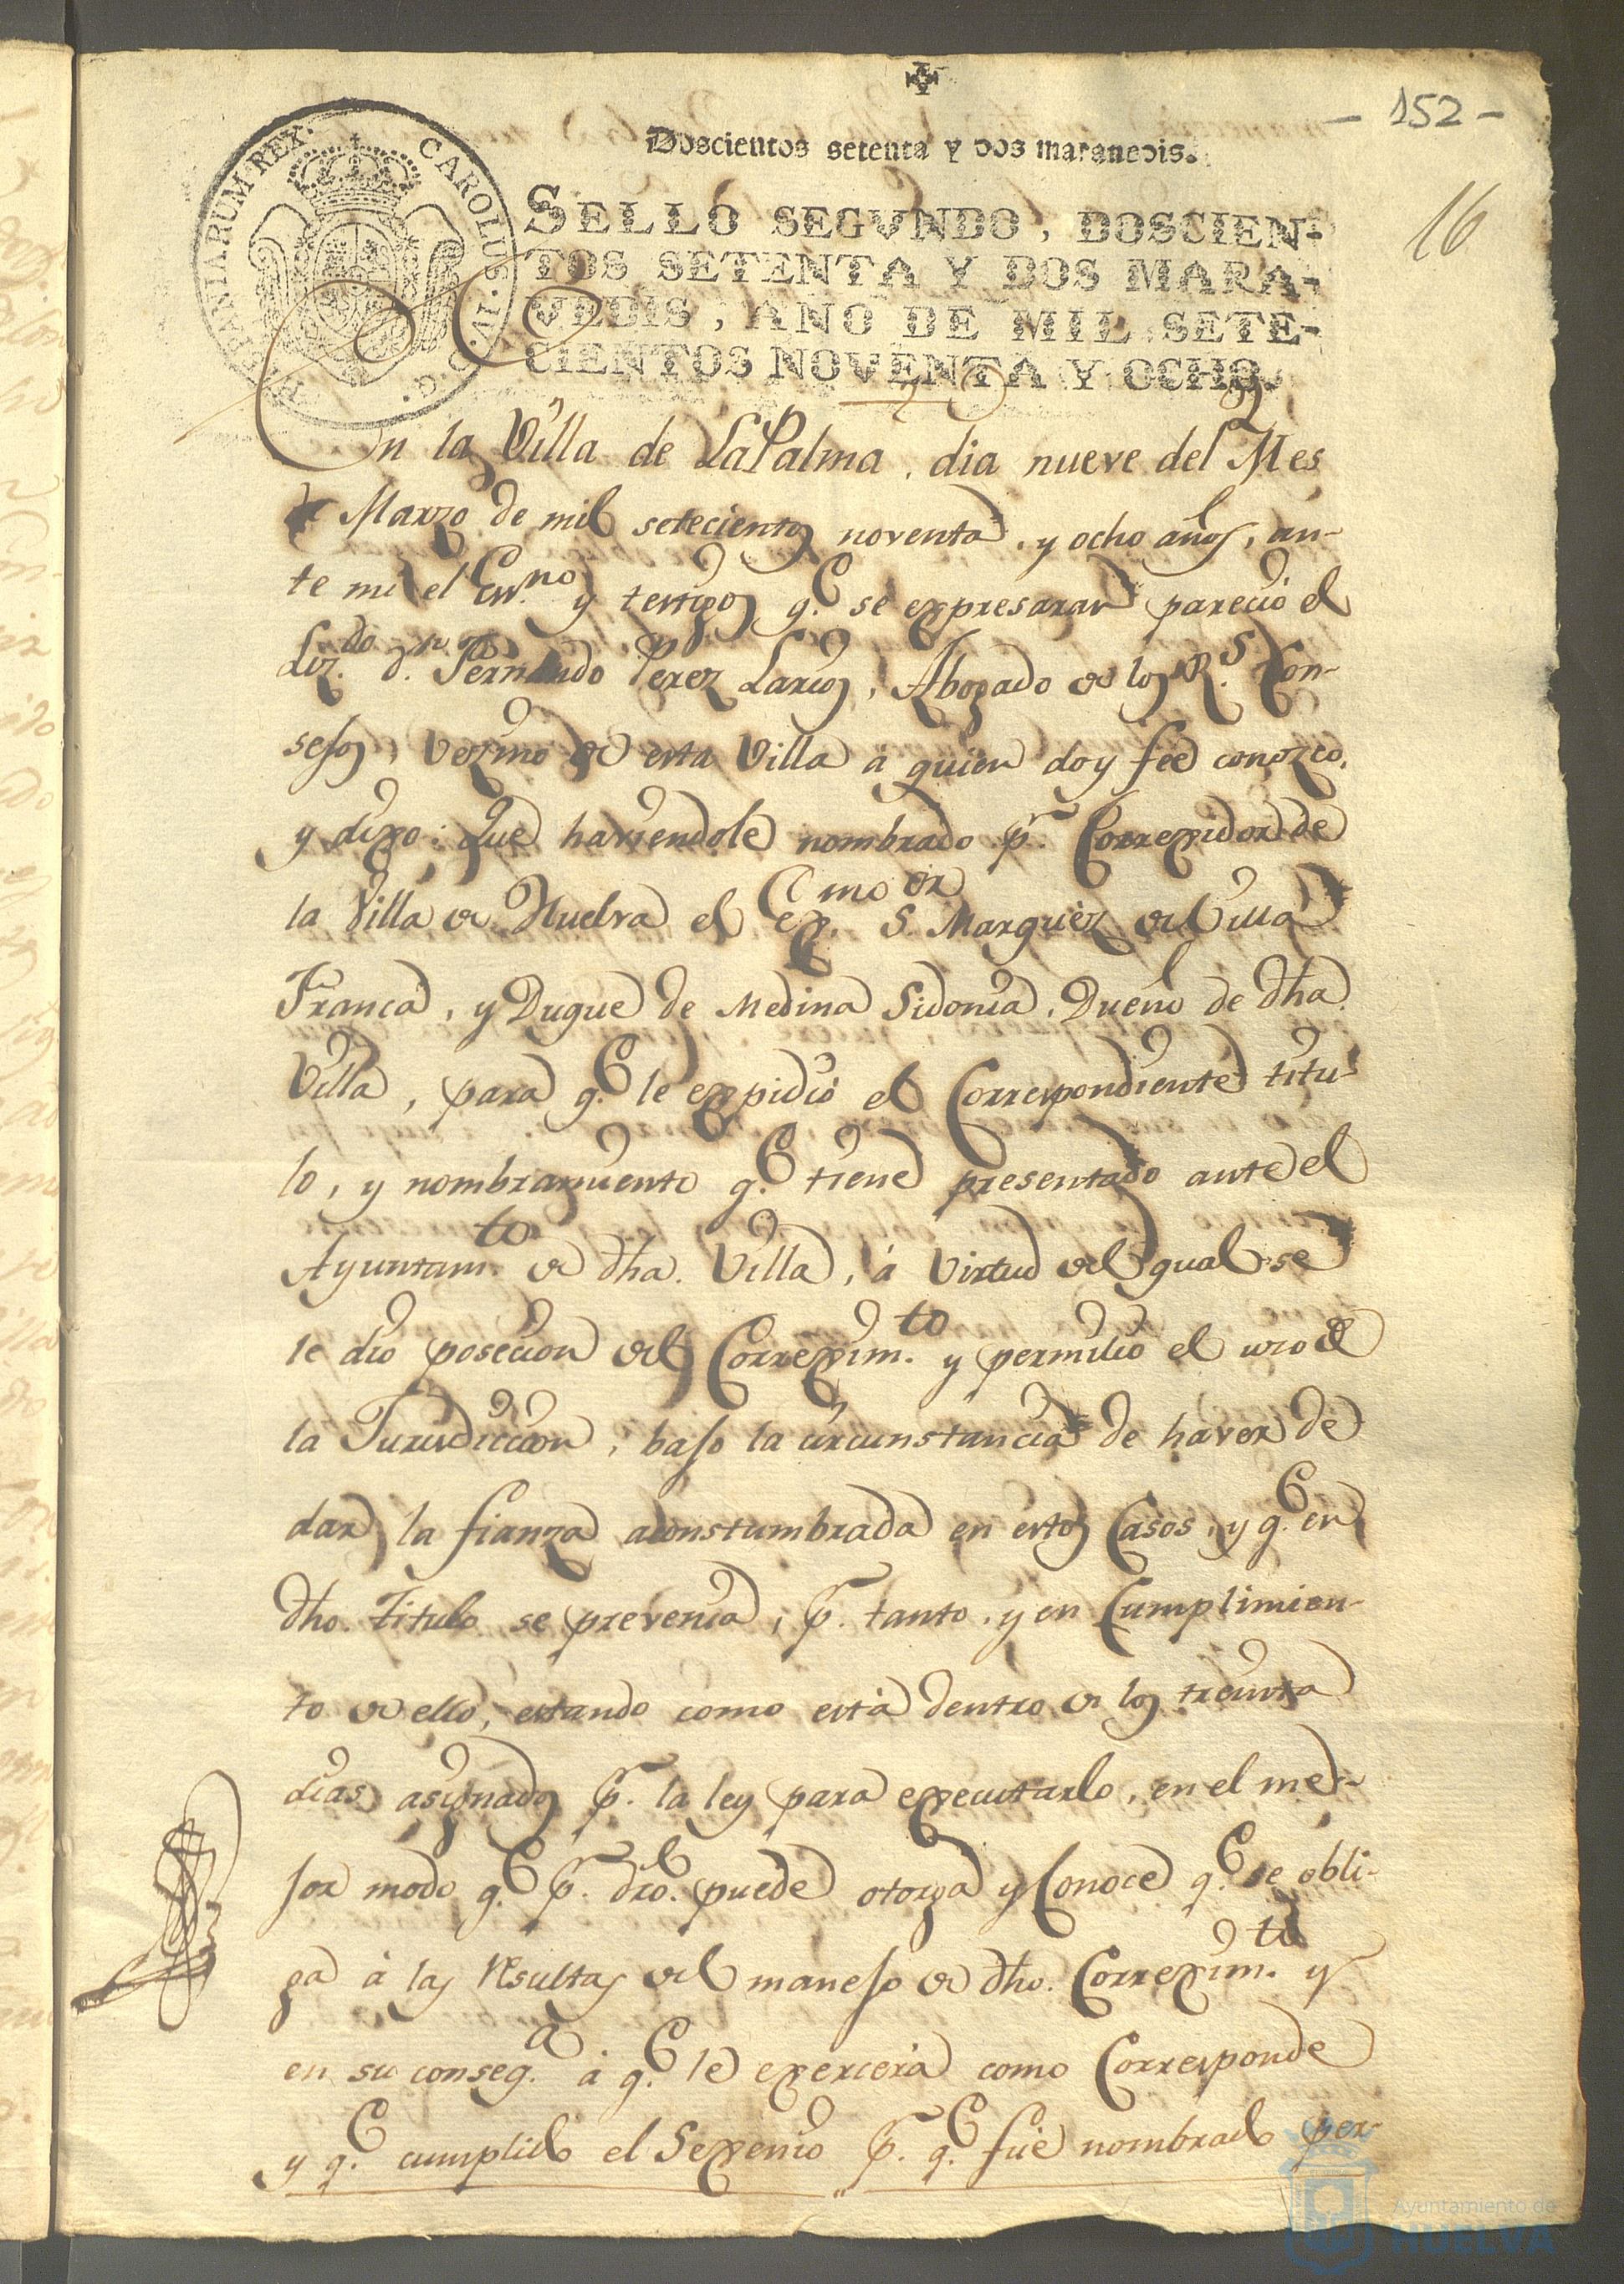 - 152 -
Doscientos setenta y dos maravedis.
16
CAROLUS·IV·D·G· HISPANIARUM·REX·
SELLO SEGVNDO, DOSCIEN-
TOS SETENTA Y DOS MARA-
VEDIS, AÑO DE MIL SETE-
CIENTOS NOVENTA Y OCHO.
En la Villa de La Palma, dia nueve del Mes
de Marzo de mil setecientos noventa, y ocho años, an-
te mi el Essno. y testigos q.e se expresaran parecio el
Liz.do d.n Fernando Perez Larios, Abogado de los R.s Con-
sejos, Vezino de esta Villa á quien doy feé conozco,
y dixo: Que haviendole nombrado p.r Correxidor de
la Villa de Huelva el Ex.mo S.or Marquéz de Villa
Franca, y Duque de Medina Sidonia, Dueño de dha.
Villa, para q.e le expidió el Correspondiente titu-
lo, y nombramiento q.e tiene presentado ante el
Ayuntam.to de dha. Villa, á Virtud del qual se
le dio posecion del Correxim.to y permitio el uso de
la Jurisdiccion, bajo la circunstancia de haver de
dar la fianza aconstumbrada en estos Casos, y q.e en
dho. titulo se prevenia, p.r tanto, y en Cumplimien-
to de ello, estando como está dentro de los treinta
dias asignados p.r la ley para executarlo, en el me-
jor modo q.e p.r dro. puede otorga y Conoce q.e se obli-
ga á las resultas del manejo de dho. Correxim.to y
en su conseq.a á q.e le exercerá como Corresponde
y q.e cumplido el Sexenio p.r q.e fué nombrado per-
Ayuntamiento de
HUELVA